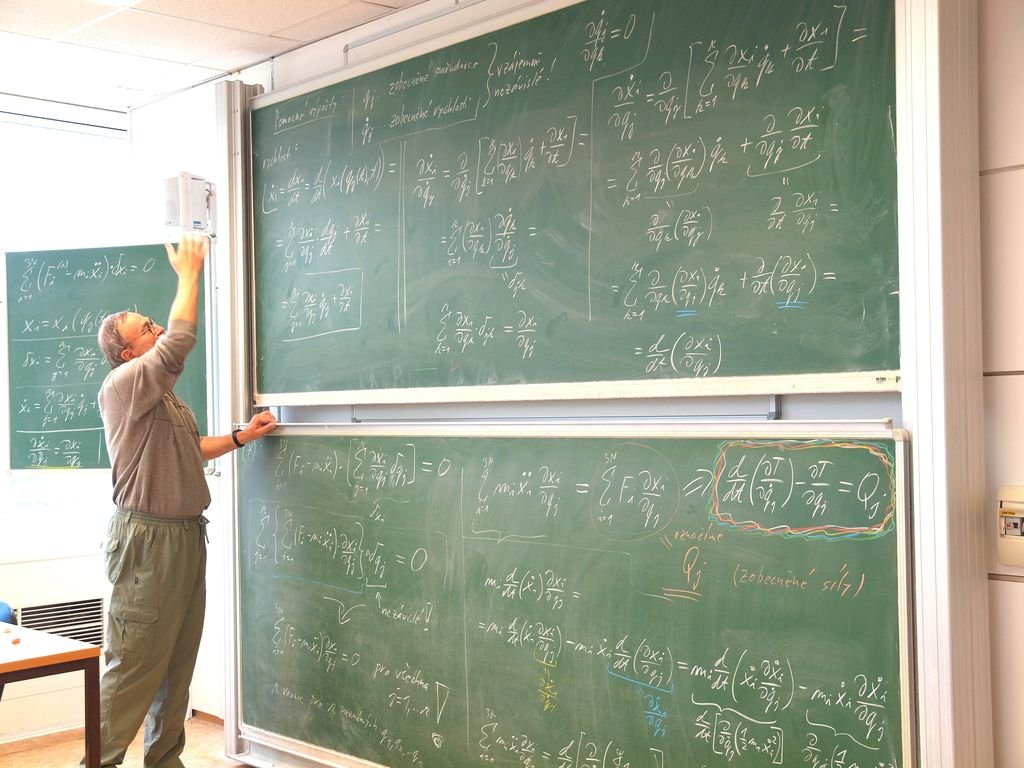 \sum_{i=1}^{3N} (F_i^{(a)} - m_i \ddot{x}_i) \delta x_i = 0
x_i = x_i(q_j
\delta x_i = \sum_{j=1}^{n} \frac{\partial x_i}{\partial q_j}
\dot{x}_i = \sum_{j=1}^{n} \frac{\partial x_i}{\partial q_j} \dot{q}_j +
\frac{\partial \dot{x}_i}{\partial \dot{q}_j} = \frac{\partial x_i}{\partial q_j}
Pomocné výpočty
q_j .. zobecněné souřadnice
\dot{q}_j .. zobecněné rychlosti
vzájemně
nezávislé!
\frac{\partial \dot{q}_j}{\partial q_k} = 0
rychlosti:
\dot{x}_i = \frac{dx_i}{dt} = \frac{d}{dt}(x_i(q_j(t), t)) =
= \sum_{j=1}^{n} \frac{\partial x_i}{\partial q_j} \frac{dq_j}{dt} + \frac{\partial x_i}{\partial t} =
= \sum_{j=1}^{n} \frac{\partial x_i}{\partial q_j} \dot{q}_j + \frac{\partial x_i}{\partial t}
\frac{\partial \dot{x}_i}{\partial \dot{q}_j} = \frac{\partial}{\partial \dot{q}_j} \left[ \sum_{k=1}^{n} \left(\frac{\partial x_i}{\partial q_k}\right) \dot{q}_k + \frac{\partial x_i}{\partial t} \right] =
= \sum_{k=1}^{n} \left(\frac{\partial x_i}{\partial q_k}\right) \frac{\partial \dot{q}_k}{\partial \dot{q}_j} =
\delta_{jk}
\sum_{k=1}^{n} \frac{\partial x_i}{\partial q_k} \delta_{jk} = \frac{\partial x_i}{\partial q_j}
\frac{\partial \dot{x}_i}{\partial q_j} = \frac{\partial}{\partial q_j} \left[ \sum_{k=1}^{n} \frac{\partial x_i}{\partial q_k} \dot{q}_k + \frac{\partial x_i}{\partial t} \right] =
= \sum_{k=1}^{n} \frac{\partial}{\partial q_j} \left(\frac{\partial x_i}{\partial q_k}\right) \dot{q}_k + \frac{\partial}{\partial q_j} \frac{\partial x_i}{\partial t}
\frac{\partial}{\partial q_k} \left(\frac{\partial x_i}{\partial q_j}\right) \quad \frac{\partial}{\partial t} \frac{\partial x_i}{\partial q_j} =
= \sum_{k=1}^{n} \frac{\partial}{\partial q_k} \left(\frac{\partial x_i}{\partial q_j}\right) \dot{q}_k + \frac{\partial}{\partial t} \left(\frac{\partial x_i}{\partial q_j}\right) =
= \frac{d}{dt} \left(\frac{\partial x_i}{\partial q_j}\right)
\sum_{i=1}^{3N} (F_i - m_i \ddot{x}_i) \cdot \left[ \sum_{j=1}^{n} \frac{\partial x_i}{\partial q_j} \delta q_j \right] = 0
\delta x_i
\sum_{j=1}^{n} \left\{ \sum_{i=1}^{3N} (F_i - m_i \ddot{x}_i) \frac{\partial x_i}{\partial q_j} \right\} \delta q_j = 0
nezávislé!
\sum_{i=1}^{3N} (F_i - m_i \ddot{x}_i) \frac{\partial x_i}{\partial q_j} = 0 pro všechna
j = 1, .. n
\sum_{i=1}^{3N} m_i \ddot{x}_i \frac{\partial x_i}{\partial q_j} = \sum_{i=1}^{3N} F_i \frac{\partial x_i}{\partial q_j} \Rightarrow \frac{d}{dt} \left(\frac{\partial T}{\partial \dot{q}_j}\right) - \frac{\partial T}{\partial q_j} = Q_j
označme
Q_j (zobecněné síly)
m_i \frac{d}{dt}(\dot{x}_i) \frac{\partial x_i}{\partial q_j} =
= m_i \frac{d}{dt} \left(\dot{x}_i \frac{\partial x_i}{\partial q_j}\right) - m_i \dot{x}_i \frac{d}{dt} \left(\frac{\partial x_i}{\partial q_j}\right) = m_i \frac{d}{dt} \left(\dot{x}_i \frac{\partial \dot{x}_i}{\partial \dot{q}_j}\right) - m_i \dot{x}_i \frac{\partial \dot{x}_i}{\partial q_j}
\frac{\partial \dot{x}_i}{\partial \dot{q}_j} \quad \frac{\partial \dot{x}_i}{\partial q_j}